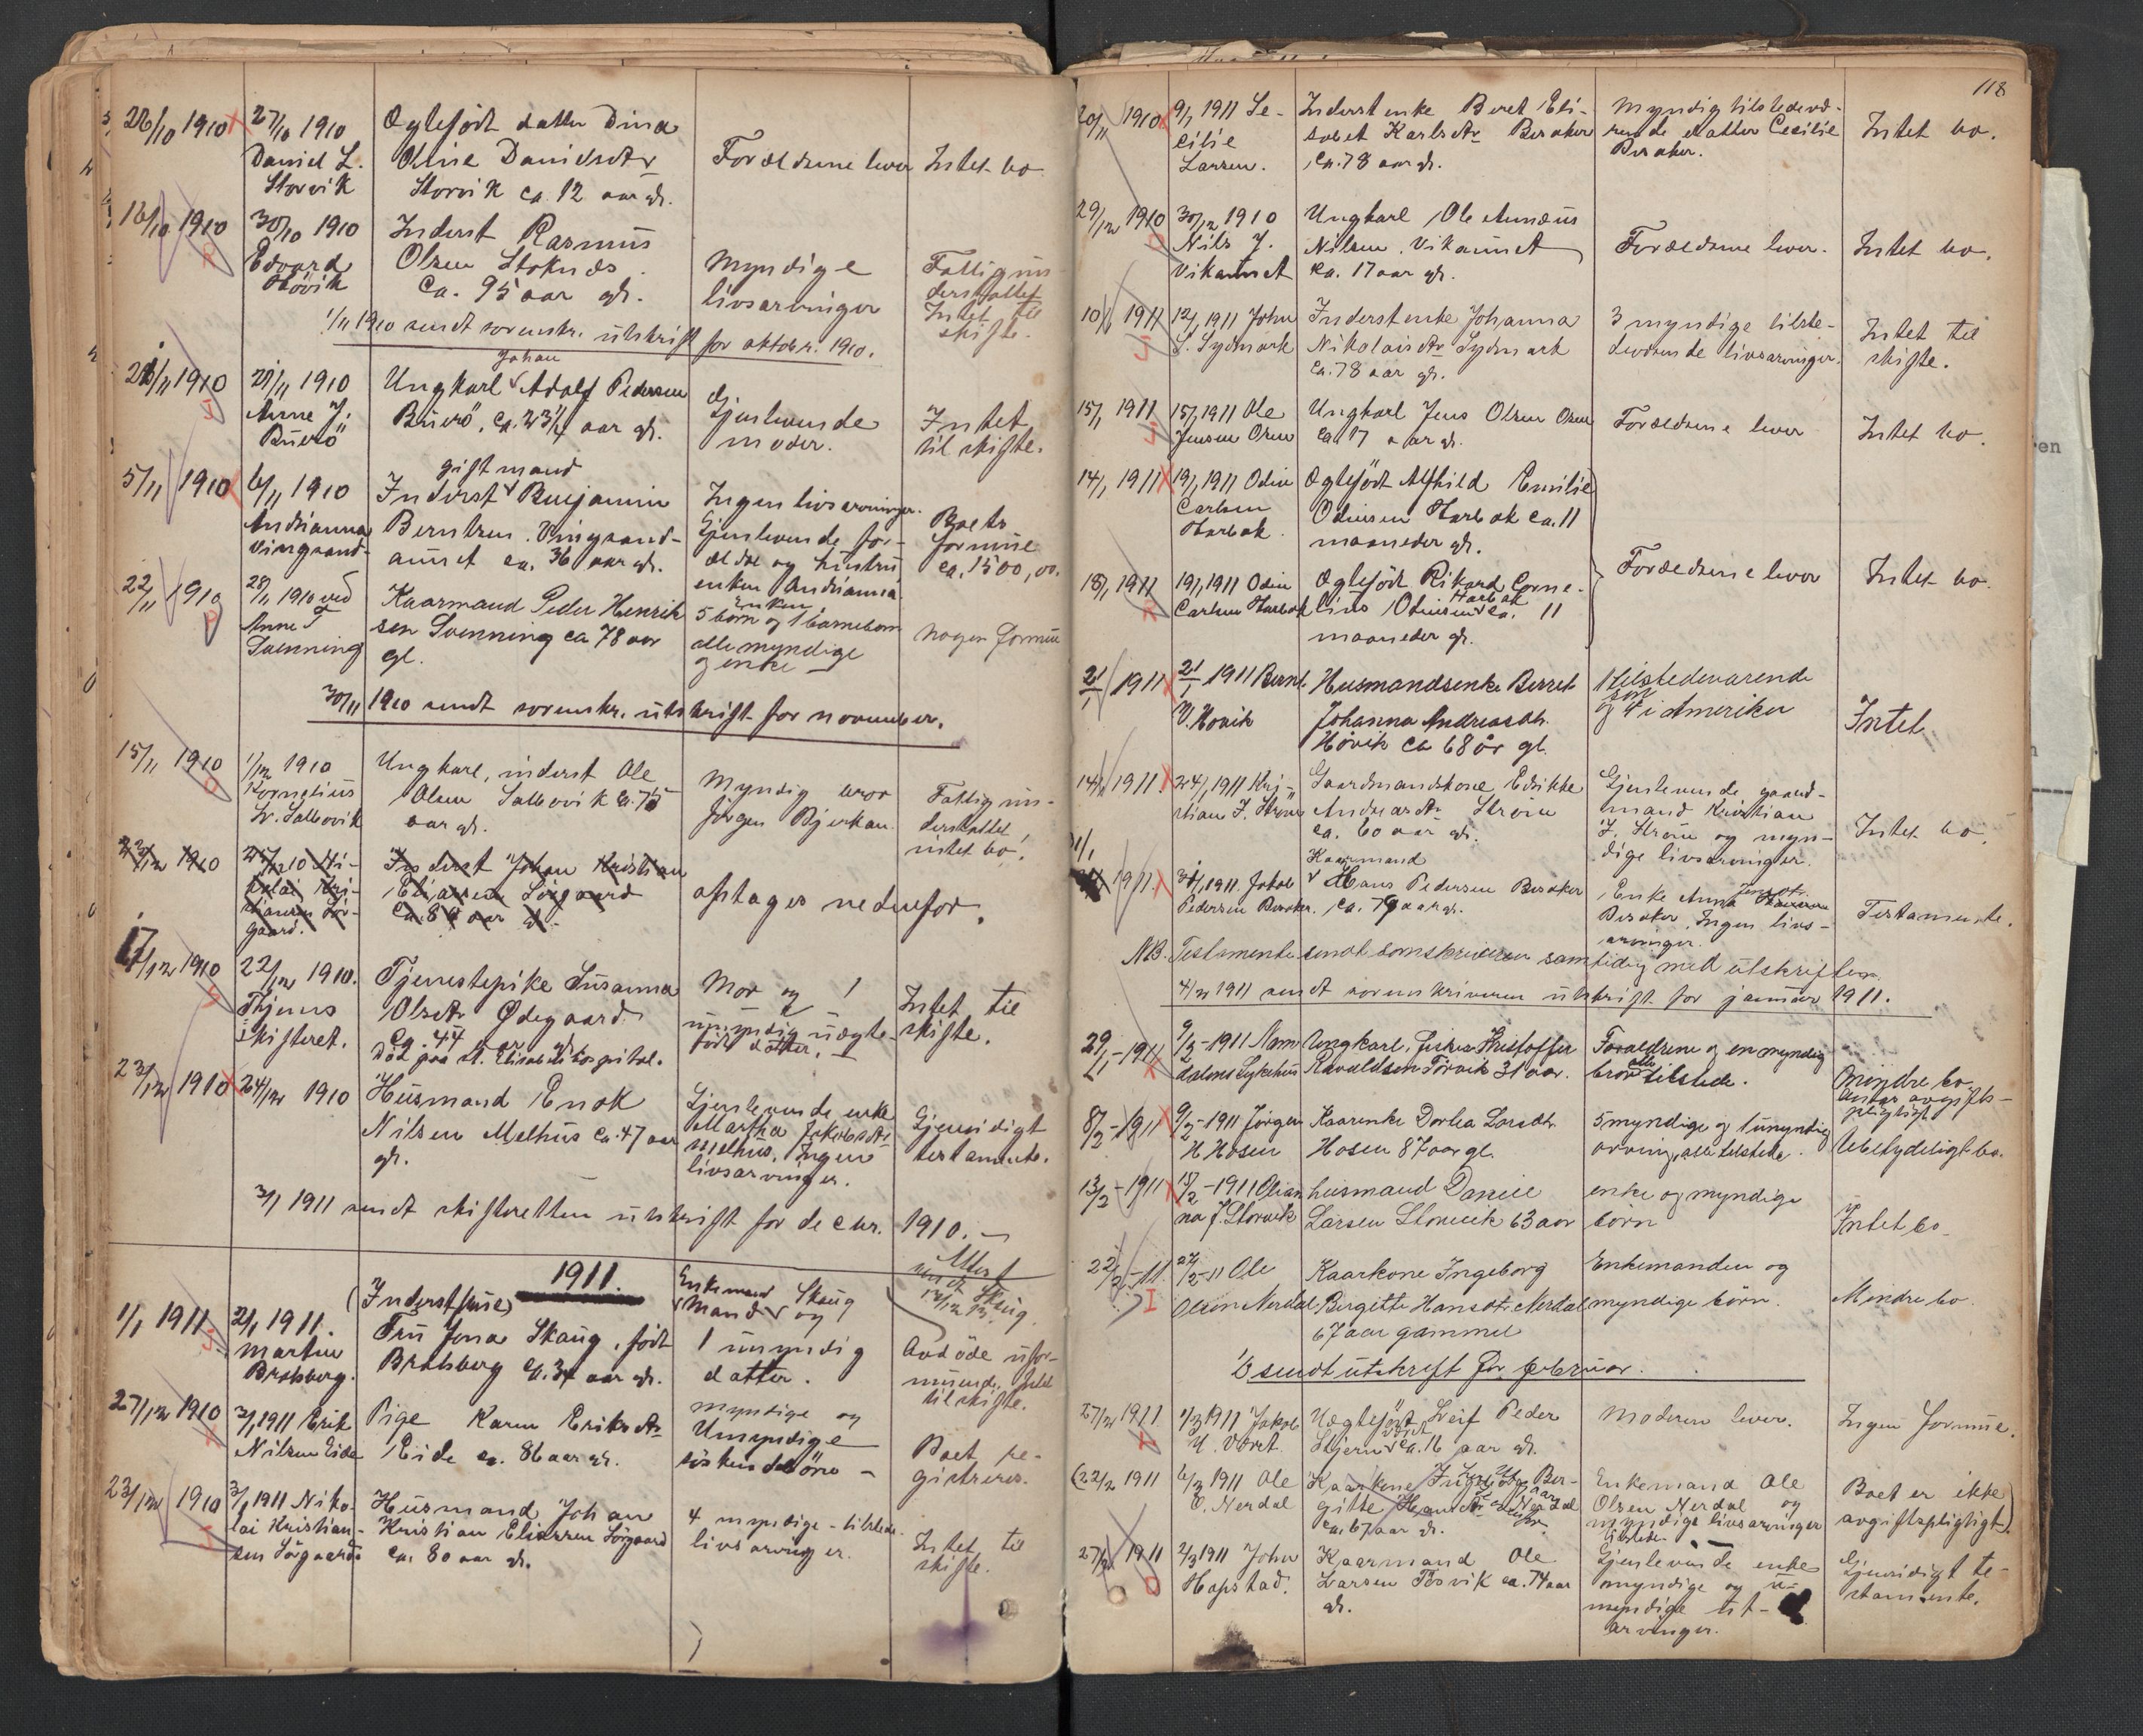 26/10 1910
27/10 1910
Daniel L.
Storvik
Ægtefödt datter Dina
Oline Danielsdtr
Storvik ca. 12 aar gl.
Forældrene lever
Intet bo
16/10 1910
30/10 1910
Edvard
Hövik
Inderst Rasmus
Olsen Stoknes
Ca. 95 aar gl.
Myndige
livsarvinger
Fattigun-
derstöttet
Intet til
skifte.
1/11 1910 sendt sorenskr. utskrift for oktober 1910.
21/11 1910
29/11 1910
Anne J.
Buerö
Johan
Ungkarl Adolf Pedersen
Buerö, ca. 23 1/4 aar gl.
Gjenlevende
moder.
Intet
til skifte.
5/11 1910
6/11 1910
Andrianna
Vingsand
gift mand
Inderst Benjamin
Berntsen Vingsand-
aunet ca. 36 aar gl.
Ingen livsarvinger.
Gjenlevende for-
ældre og hustru
enken Andrianna
Boets
formue
ca. 1500,00.
22/11 1910
28/11 1910 ved
Anne T
Svenning
Kaarmand Peder Henrik
sen Svenning ca 78 aar
gl.
Enken
5 börn og 1 barnebarn
alle myndige
og enke
Nogen formue
30/11 1910 sendt sorenskr. utskrift for november.
15/11 1910
1/12 1910
Kornelius
Ungkarl, inderst Ole
Olsen Sætervik ca. 75
aar gl.
Myndig bror
Jörgen Bjerkan
Fattigun-
derstöttet
intet bo.
23/12 1910
Inderst Johan Kristian
Eliassen Sörgaard
Ca. 80 aar gl.
optages nedenfor.
17/12 1910
22/12 1910.
Thjems
skifteret.
Tjenestepike Susanna
Olsdtr Ødegaard
Ca. 44 aar gl.
Död paa St. Elisabeth hospital.
Mor og 1
umyndig uægte-
födt datter.
Intet til
skifte.
23/12 1910
24/12 1910
Husmand Enok
Nilsen Melhus ca. 47 aar
gl.
Gjenlevende enke
Martha Jakobsdtr
Melhus. Ingen
livsarvinger.
Gjensidigt
testamente.
3/1 1911 sendt skifteretten utskrift for decbr. 1910.
1911.
1/1 1911
2/1 1911.
Martin
Brobsberg.
(Inderst
Fru Jona Skaug, födt
Brobsberg ca. 34 aar gl.
Enkemand Skaug
Mand og
1 umyndig
datter.
Attest
sendt Skaug
Avdöde ufor-
muende. Intet
til skifte.
27/12 1910
3/1 1911 Erik
Nilsen Eide
Pige Karen Eriksdtr
Eide ca. 86 aar gl.
Myndige og
Umyndige
söskendebörn
Boet re-
gistreres.
23/12 1910
3/1 1911 Niko-
lai Kristian-
sen Sörgaard
Husmand Johan
Kristian Eliassen Sörgaard
ca. 80 aar gl.
4 myndige tilstede
livsarvinger.
Intet til
skifte.
118
20/11 1910
9/1 1911 Ce-
cilie
Larsen.
Inderst enke Beret Eli-
sabet Karlsdtr Besaker
ca. 78 aar gl.
Myndig tilstedevæ-
rende datter Cecilie
Besaker.
Intet bo.
29/12 1910
30/12 1910
Nils J.
Vikaunet
Ungkarl Ole Amæus
Nilsen Vikaunet
ca. 17 aar gl.
Forældrene lever.
Intet bo.
10/1 1911
12/1 1911 John
S. Sydmark
Inderst enke Johanna
Nikolaisdtr Sydmark
ca. 78 aar gl.
3 myndige tilste-
deværende livsarvinger.
Intet til
skifte.
15/1 1911
15/1 1911 Ole
Jensen Osen
Ungkarl Jens Olsen Osen
ca. 17 aar gl.
Forældrene lever
Intet bo.
14/1 1911
19/1 1911 Odin
Carlsen
Harbak.
Ægtefödt Alfhild Emilie
Odinsen Harbak ca. 11
maaneder gl.
18/1 1911
19/1 1911 Odin
Carlsen Harbak
Ægtefödt Rikard Corne-
lius Odinsen Harbak ca. 11
maaneder gl.
Forældrene lever
Intet bo.
21/1 1911
21/1 1911 Bernt
V. Hövik
Husmandsenke Berret
Johanna Andreasdtr.
Hövik ca 68 år gl.
1 tilstedevarende
sön
og 4 i Amerika
Intet
14/1 1911.
24/1 1911 Kri-
stian J. Ström
Gaardmandskone Edikke
Andreasdtr Ström
ca. 60 aar gl.
Gjenlevende gaard-
mand Kristian
J. Ström og myn-
dige livsarvinger.
Intet bo.
31/1
1911.
31/1 1911. Jakob
Pedersen Besaker.
Kaarmand
Hans Pedersen Besaker
ca. 79 aar gl.
Enke Anna Jensdt.
Besaker. Ingen livs-
arvinger.
Testamente.
NB. Testamente sendt sorenskriveren samtidig med utskriften.
4/2 1911 sendt sorenskriveren utskrift for januar 1911.
29/1-1911
9/2-1911 Nam
dalens Sykehus
Ungkarl, fisker Kristoffer
Ravaldsen Törvik 31 aar.
Forældrene og en myndig
bror alle tilstede.
Mindre bo
antar avgifts-
pligtigt
8/2-1911
9/2-1911 Jörgen
H Hosen
Kaarenke Dorlea Larsdtr.
Hosen 87 aar gl.
5 myndige og 1 umyndig
arving, alle tilstede.
Ubetydeligt bo.
13/2-1911
15/2-1911 Olian
na J. Storvik
husmand Daniel
Larsen Storvik 63 aar
enke og myndige
börn
Intet bo
22/2-11.
27/2-11 Ole
Olsen Nerdal
Kaarkone Ingeborg
Birgitte Hansdtr. Nerdal
67 aar gammel
Enkemanden og
myndige börn.
Mindre bo
1/3 sendt utskrift for februar.
27/2 1911
1/3 1911 Jakob
U. Været.
Uægtefödt Leif Peder
Stjern Været ca. 16 aar gl.
Moderen lever.
Ingen formue.
(22/2 1911
6/3 1911 Ole
O. Nerdal
Kaarkone Ingeborg Ber-
gitte Hansdtr Nerdal
ca. 67 aar gl.
Enkemand Ole
Olsen Nerdal og
myndige livsarvinger
tilstede.
Boet er ikke
avgiftspligtigt.)
27/2 1911
2/3 1911 John
Hopstad.
Kaarmand Ole
Larsen Fösvik ca. 74 aar
gl.
Gjenlevende enke
myndige og u-
myndige ut-
arvinger.
Gjensidigt te-
stamente.